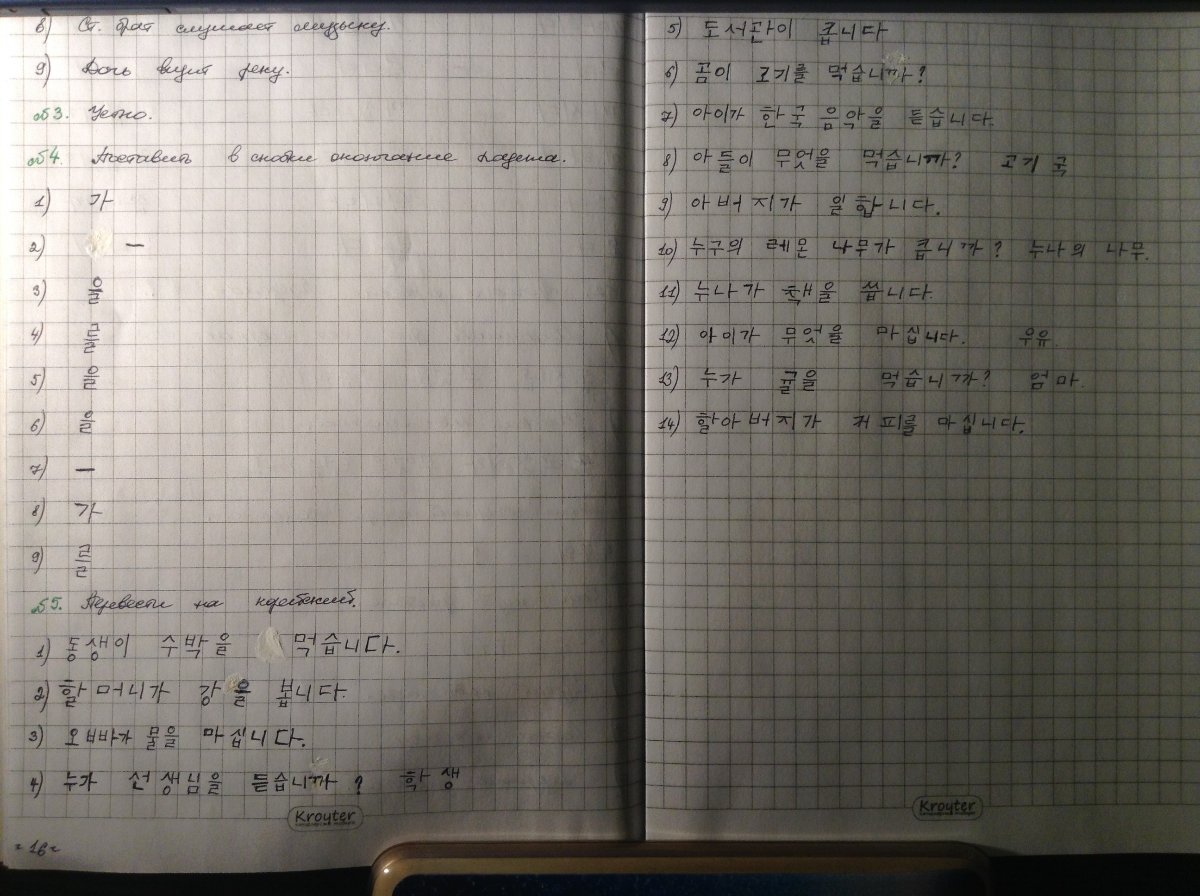 8) Ст. брат слушает музыку.
9) Дочь видит реку.
№3. Устно.
№4. Поставить в скобки окончание падежа.
1) 가
2) —
3) 을
4) 를
5) 을
6) 을
7) —
8) 가
9) 를
№5. Перевести на корейский.
1) 동생이 수박을 먹습니다.
2) 할머니가 강을 봅니다.
3) 오빠가 물을 마십니다.
4) 누가 선생님을 듣습니까? 학생
Kroyter
-16-
5) 도서관이 큽니다
6) 곰이 고기를 먹습니까?
7) 아이가 한국 음악을 듣습니다.
8) 아들이 무엇을 먹습니까? 고기 국
9) 아버지가 일합니다.
10) 누구의 레몬 나무가 큽니까? 누나의 나무.
11) 누나가 책을 씁니다.
12) 아이가 무엇을 마십니다. 우유.
13) 누가 귤을 먹습니까? 엄마.
14) 할아버지가 커피를 마십니다.
Kroyter